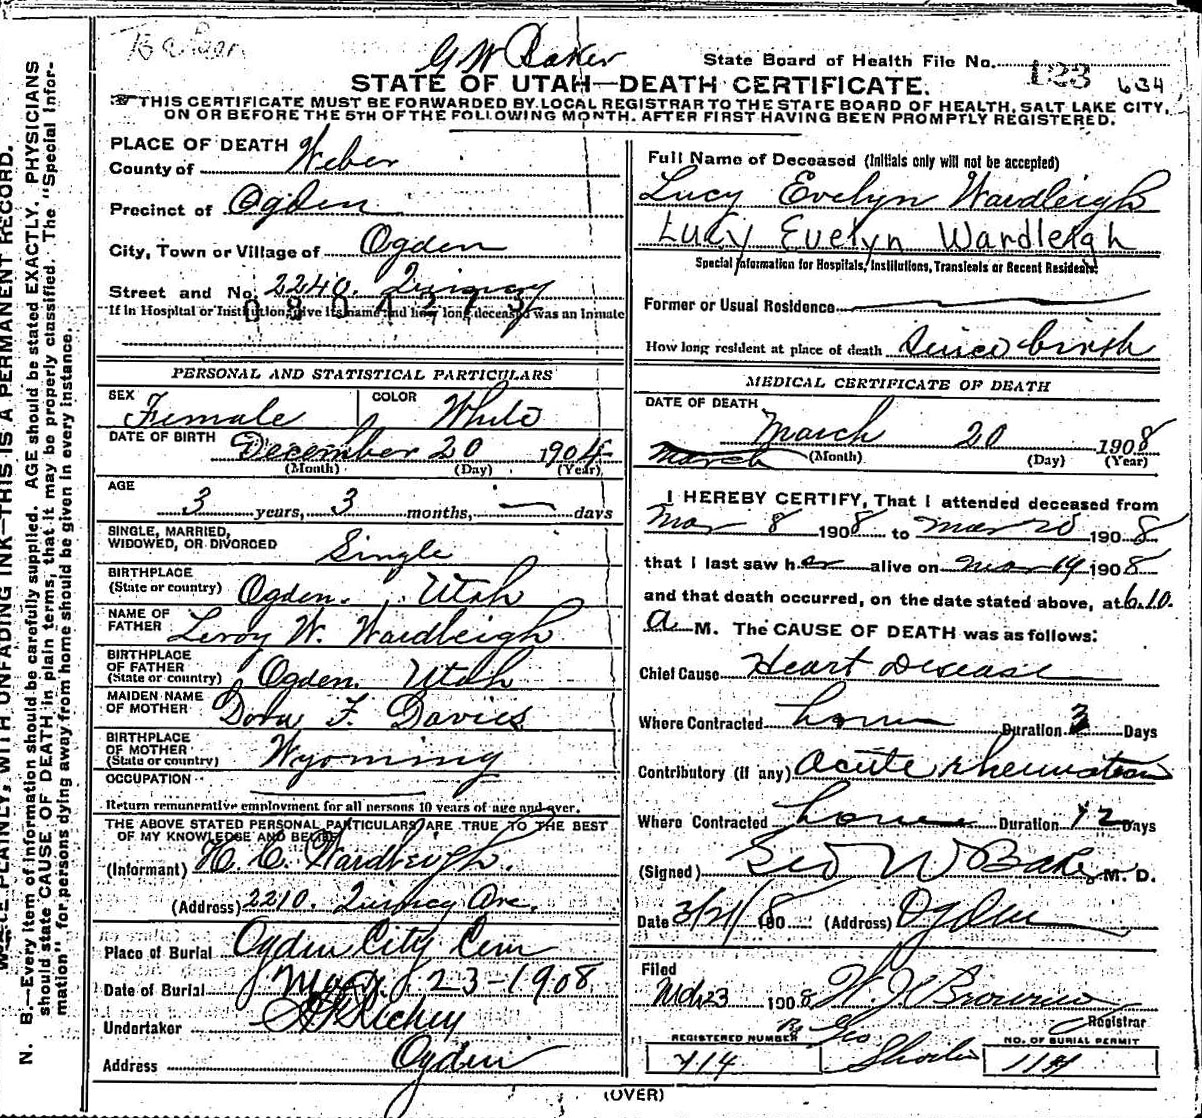 G W Baker
State Board of Health File No. 123 634
STATE OF UTAH—DEATH CERTIFICATE.
THIS CERTIFICATE MUST BE FORWARDED BY LOCAL REGISTRAR TO THE STATE BOARD OF HEALTH, SALT LAKE CITY,
ON OR BEFORE THE 5TH OF THE FOLLOWING MONTH. AFTER FIRST HAVING BEEN PROMPTLY REGISTERED.
PLACE OF DEATH
County of Weber
Precinct of Ogden
City, Town or Village of Ogden
Street and No. 2240. Quincy
If in Hospital or Institution, give its name and how long deceased was an Inmate
PERSONAL AND STATISTICAL PARTICULARS
SEX Female COLOR White
DATE OF BIRTH December 20 1904
(Month) (Day) (Year)
AGE
3 years, 3 months, — days
SINGLE, MARRIED,
WIDOWED, OR DIVORCED Single
BIRTHPLACE
(State or country) Ogden. Utah
NAME OF
FATHER Leroy W. Wardleigh
BIRTHPLACE
OF FATHER
(State or country) Ogden. Utah
MAIDEN NAME
OF MOTHER Dora F. Davies
BIRTHPLACE
OF MOTHER
(State or country) Wyoming
OCCUPATION
Return remunerative employment for all persons 10 years of age and over.
THE ABOVE STATED PERSONAL PARTICULARS ARE TRUE TO THE BEST
OF MY KNOWLEDGE AND BELIEF
(Informant) H. C. Wardleigh.
(Address) 2210. Quincy Ave.
Place of Burial Ogden City Cem
Date of Burial Mar. 23-1908
Undertaker Richey
Address Ogden
Full Name of Deceased (Initials only will not be accepted)
Lucy Evelyn Wardleigh
Lucy Evelyn Wardleigh
Special Information for Hospitals, Institutions, Transients or Recent Residents.
Former or Usual Residence
How long resident at place of death Since birth
MEDICAL CERTIFICATE OF DEATH
DATE OF DEATH
March 20 1908
March (Month) (Day) (Year)
I HEREBY CERTIFY, That I attended deceased from
Mar 8 1908 to Mar 20 1908
that I last saw her alive on Mar 19 1908
and that death occurred, on the date stated above, at 6.10.
a M. The CAUSE OF DEATH was as follows:
Chief Cause Heart Disease
Where Contracted home Duration 3 Days
Contributory (if any) acute rheumatism
Where Contracted home Duration 12 Days
(Signed) Geo W Baker M. D.
Date 3/21/1908 (Address) Ogden
Filed
Mch 23 1908
Registrar
REGISTERED NUMBER
714
NO. OF BURIAL PERMIT
(OVER)
N. B.—Every item of information should be carefully supplied. AGE should be stated EXACTLY. PHYSICIANS
should state CAUSE OF DEATH in plain terms, that it may be properly classified. The "Special Infor-
mation" for persons dying away from home should be given in every instance.
PLAINLY, WITH UNFADING INK—THIS IS A PERMANENT RECORD.